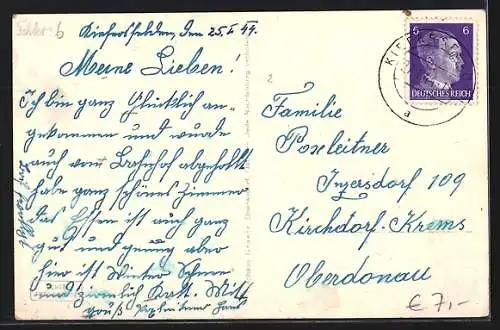 Fehler b
Kiefersfelden, den 25.I.44.
Meine Lieben!
Ich bin ganz Glücklich an-
gekommen und wurde
auch vom Bahnhof abgeholt
habe ganz schönes Zimmer
das Essen ist auch ganz
gut und genug aber
hier ist Winter Schnee
und ziemlich kalt.
gruß Poxleitner Hans
2
6 6
DEUTSCHES REICH
KIEF
a
Familie
Poxleitner
Inzersdorf 109
Kirchdorf-Krems
Oberdonau
€ 7,-